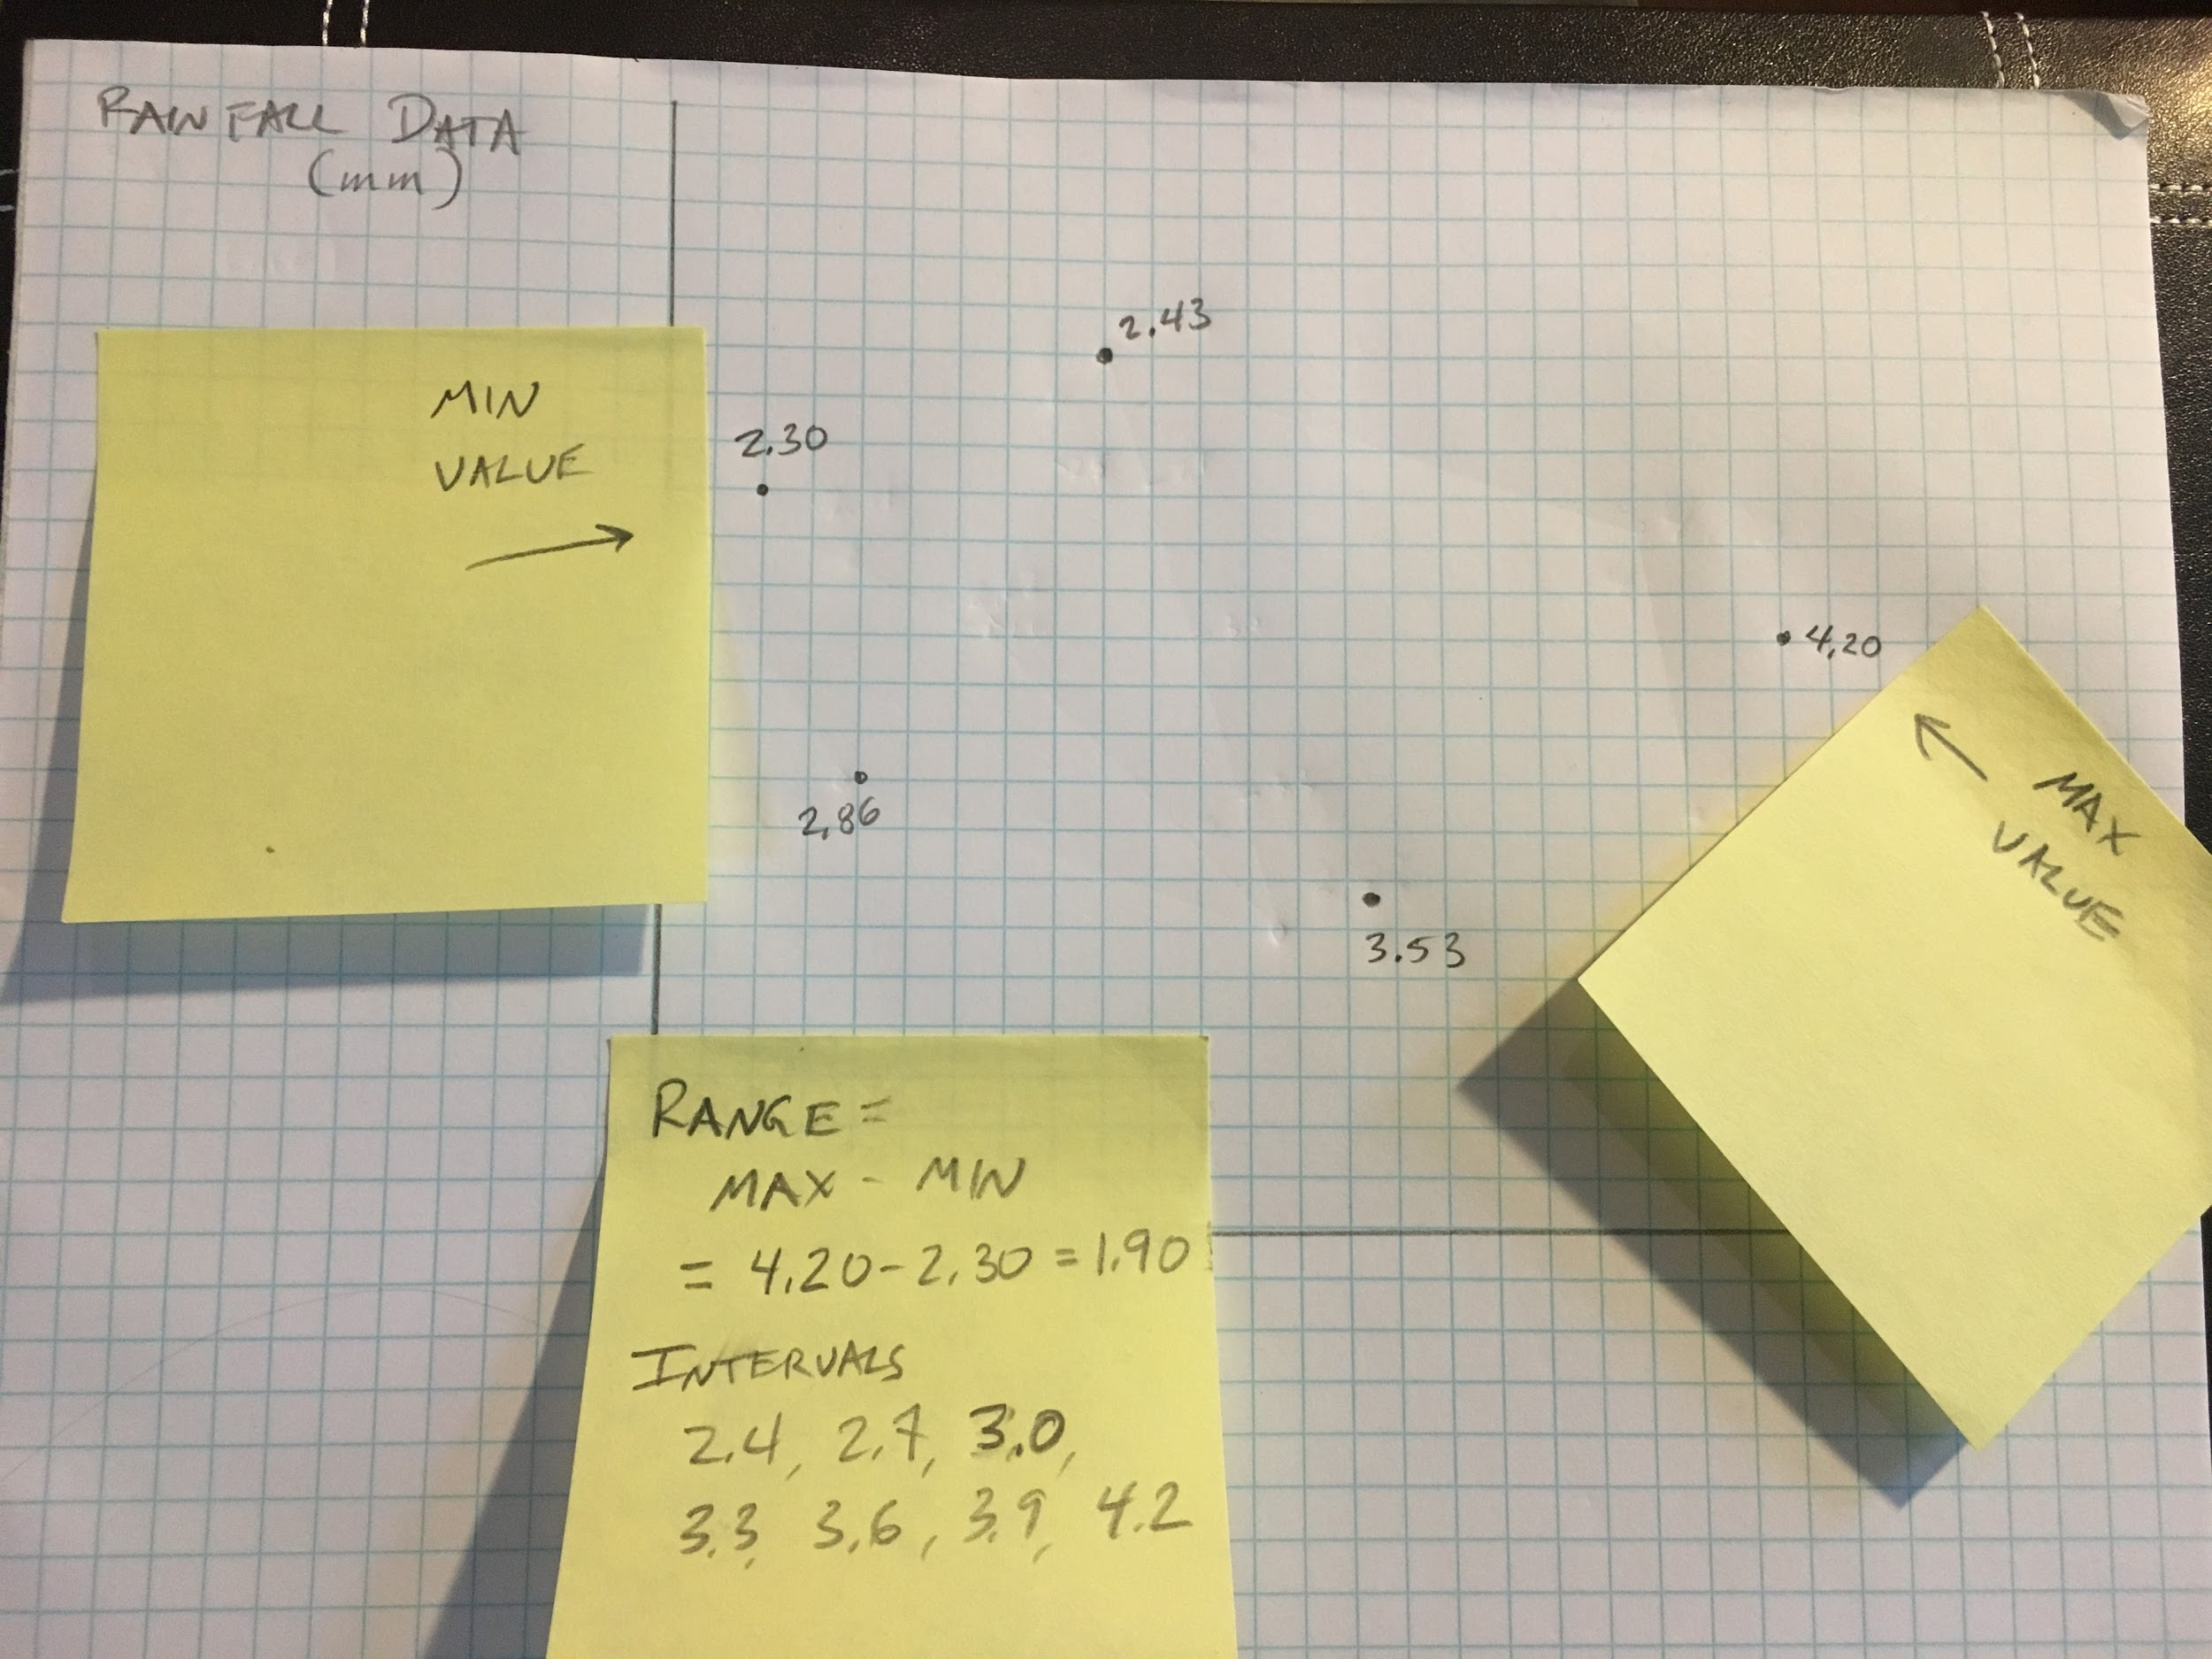 RAINFALL DATA
(mm)
2.43
MIN
VALUE
2.30
4.20
MAX
VALUE
2.86
3.53
RANGE =
MAX - MIN
= 4.20 - 2.30 = 1.90
INTERVALS
2.4, 2.7, 3.0,
3.3, 3.6, 3.9, 4.2